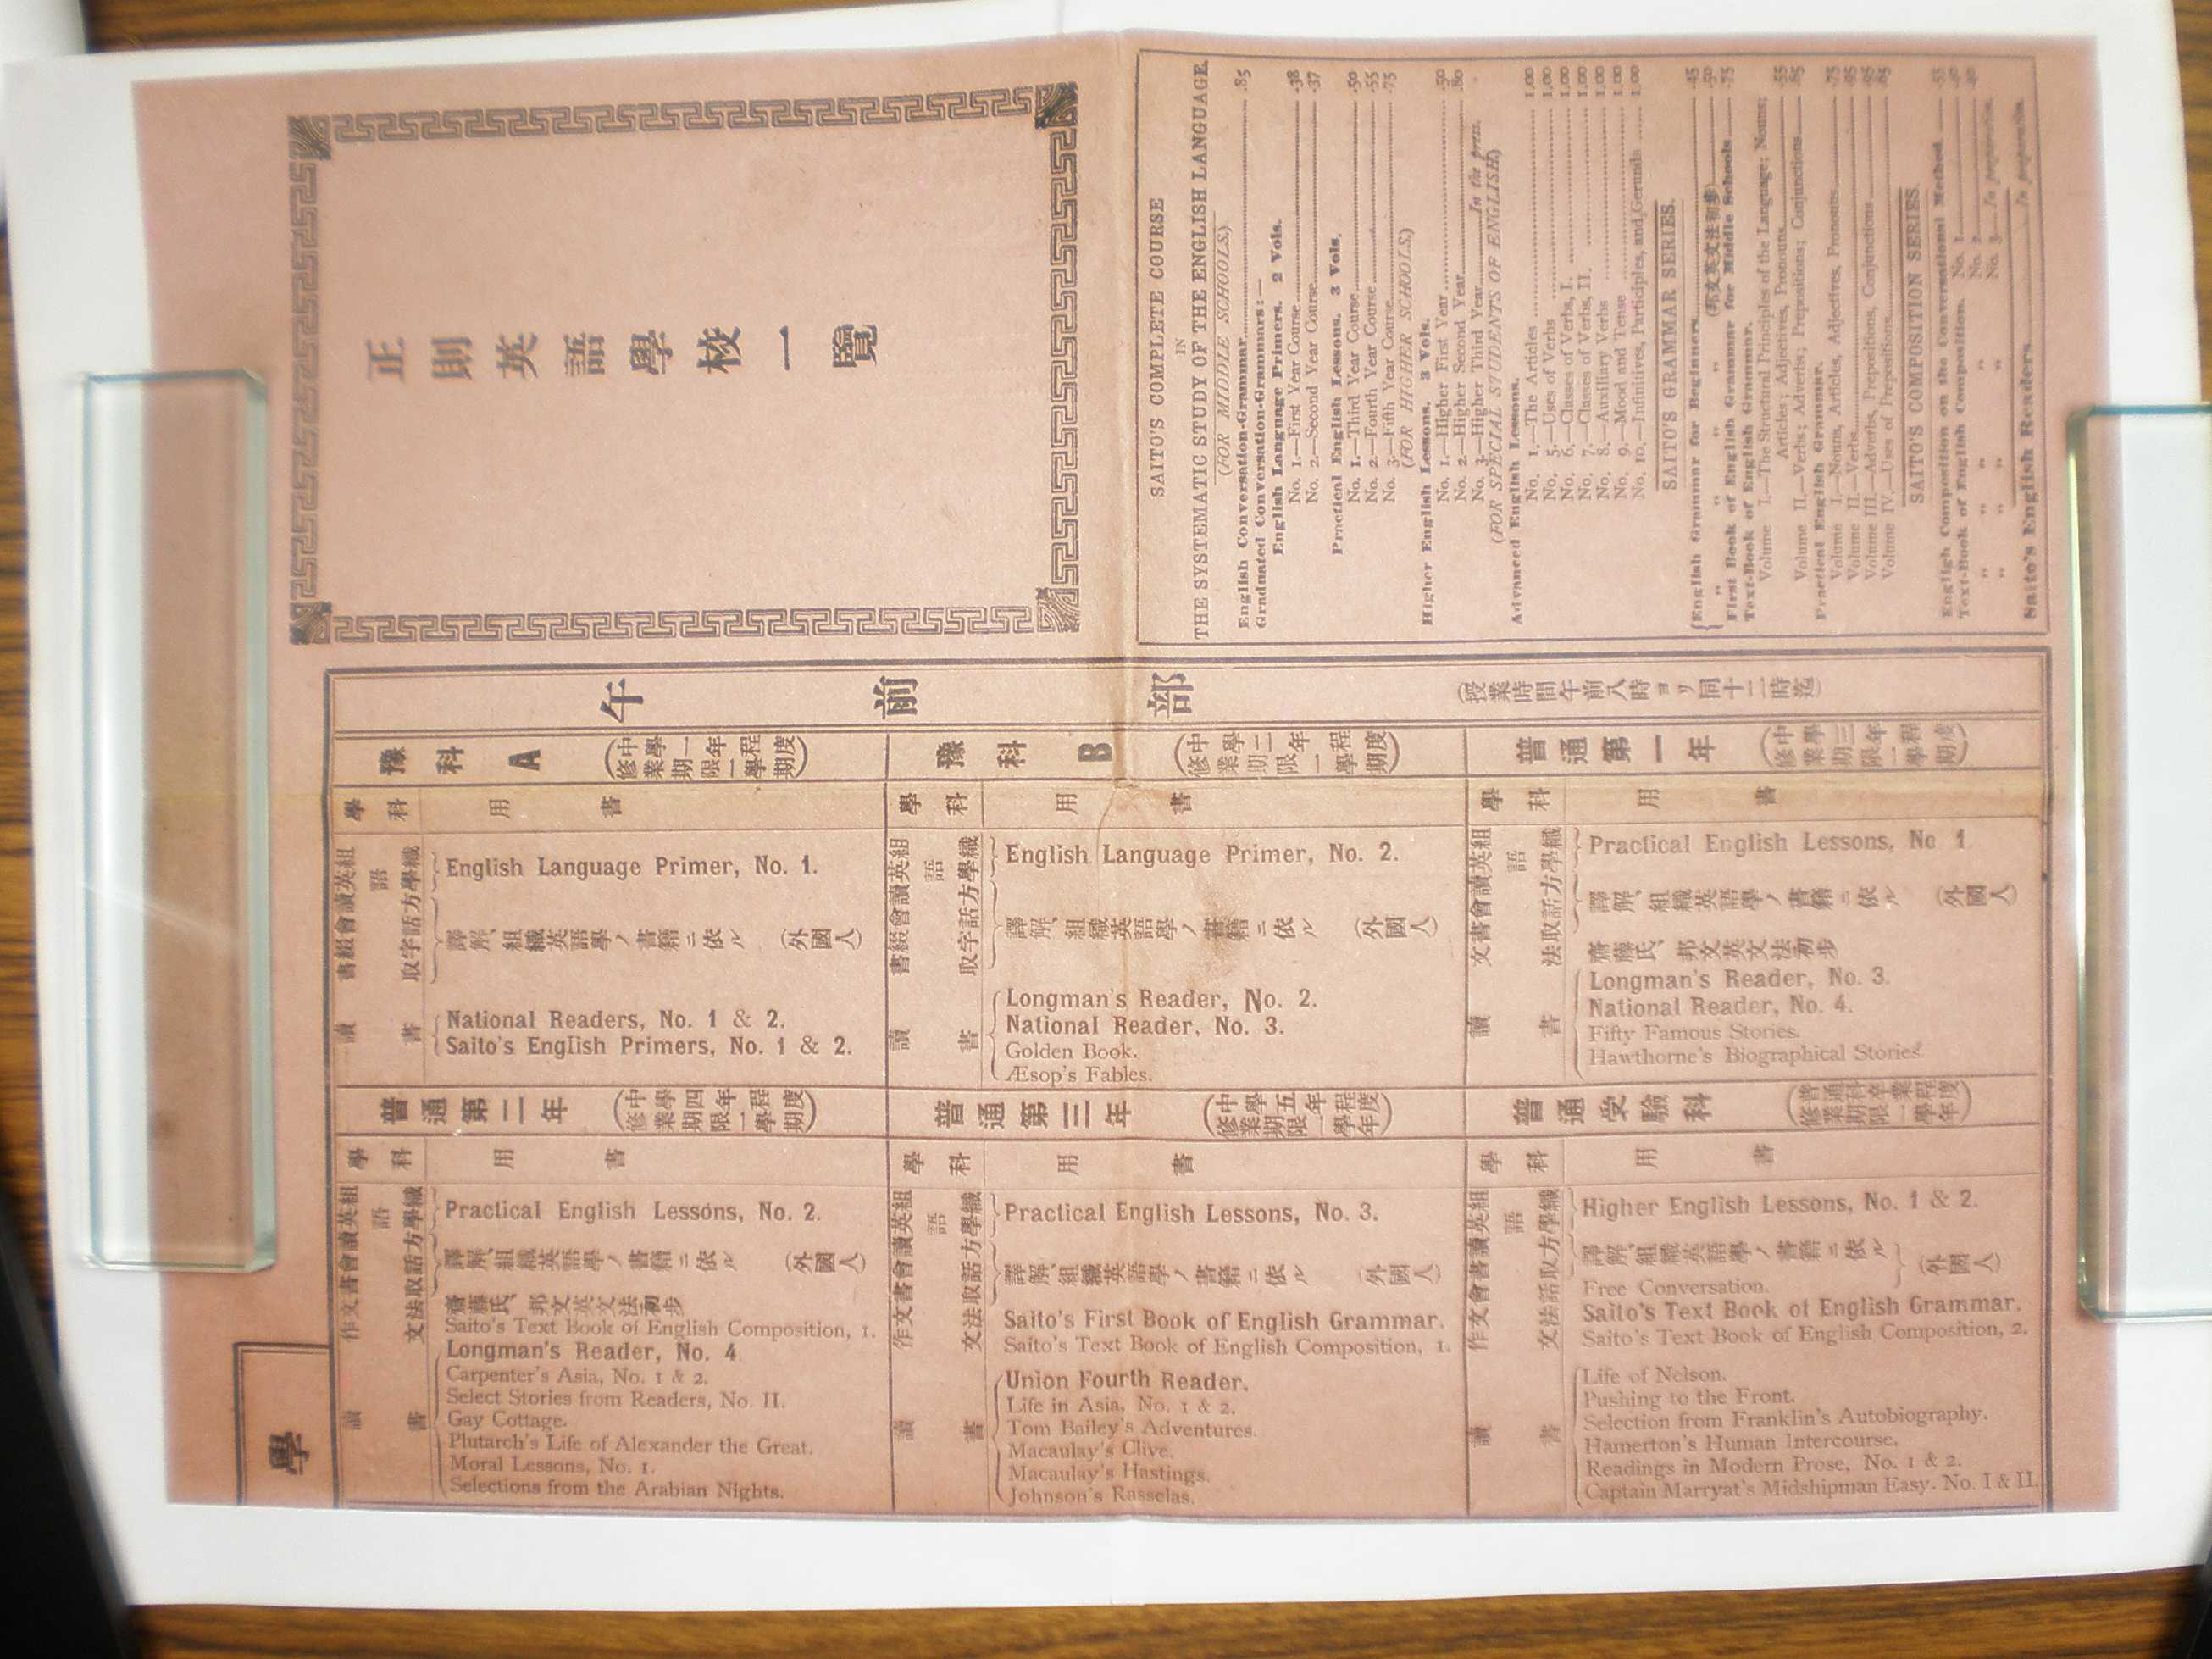 正則英語學校一覽
SAITO'S COMPLETE COURSE
IN
THE SYSTEMATIC STUDY OF THE ENGLISH LANGUAGE.
(FOR MIDDLE SCHOOLS)
English Conversation-Grammar .85
Graduated Conversation-Grammars:—
English Language Primers. 2 Vols.
No. 1.—First Year Course .38
No. 2.—Second Year Course .37
Practical English Lessons. 3 Vols.
No. 1.—Third Year Course .50
No. 2.—Fourth Year Course .55
No. 3.—Fifth Year Course .75
(FOR HIGHER SCHOOLS)
Higher English Lessons. 3 Vols.
No. 1.—Higher First Year .50
No. 2.—Higher Second Year .80
No. 3.—Higher Third Year In the press.
(FOR SPECIAL STUDENTS OF ENGLISH)
Advanced English Lessons.
No. 1.—The Articles 1.00
No. 5.—Uses of Verbs 1.00
No. 6.—Classes of Verbs, I. 1.00
No. 7.—Classes of Verbs, II. 1.00
No. 8.—Auxiliary Verbs 1.00
No. 9.—Mood and Tense 1.00
No. 10.—Infinitives, Participles, and Gerunds 1.00
SAITO'S GRAMMAR SERIES.
English Grammar for Beginners .45
" " " " (邦文英文法初步) .50
First Book of English Grammar for Middle Schools .75
Text-Book of English Grammar.
Volume I.—The Structural Principles of the Language; Nouns;
Articles; Adjectives, Pronouns .55
Volume II.—Verbs; Adverbs; Prepositions; Conjunctions .85
Practical English Grammar.
Volume I.—Nouns, Articles, Adjectives, Pronouns .75
Volume II.—Verbs .95
Volume III.—Adverbs, Prepositions, Conjunctions .95
Volume IV.—Uses of Prepositions .85
SAITO'S COMPOSITION SERIES.
English Composition on the Conversational Method .55
Text-Book of English Composition. No. 1
" " " No. 2
" " " No. 3 In preparation.
Saito's English Readers In preparation.
午前部 (授業時間午前八時ヨリ同十二時迄)
豫科A (中學一年程度 修業期限一學期)
學科 用書
組織英語學 English Language Primer, No. 1.
讀方 會話 綴字 書取 譯解、組織英語學ノ書籍ニ依ル (外國人)
讀書 National Readers, No. 1 & 2.
Saito's English Primers, No. 1 & 2.
豫科B (中學二年程度 修業期限一學期)
學科 用書
組織英語學 English Language Primer, No. 2.
讀方 會話 綴字 書取 譯解、組織英語學ノ書籍ニ依ル (外國人)
讀書 Longman's Reader, No. 2.
National Reader, No. 3.
Golden Book.
Æsop's Fables.
普通第一年 (中學三年程度 修業期限一學期)
學科 用書
組織英語學 Practical English Lessons, No 1.
讀方 會話 書取 譯解、組織英語學ノ書籍ニ依ル (外國人)
文法 齋藤氏、邦文英文法初步
讀書 Longman's Reader, No. 3.
National Reader, No. 4.
Fifty Famous Stories.
Hawthorne's Biographical Stories.
普通第二年 (中學四年程度 修業期限一學期)
學科 用書
組織英語學 Practical English Lessons, No. 2.
讀方 會話 書取 譯解、組織英語學ノ書籍ニ依ル (外國人)
文法 齋藤氏、邦文英文法初步
作文 Saito's Text Book of English Composition, 1.
讀書 Longman's Reader, No. 4
Carpenter's Asia, No. 1 & 2.
Select Stories from Readers, No. II.
Gay Cottage.
Plutarch's Life of Alexander the Great.
Moral Lessons, No. 1.
Selections from the Arabian Nights.
普通第三年 (中學五年程度 修業期限一學年)
學科 用書
組織英語學 Practical English Lessons, No. 3.
讀方 會話 書取 譯解、組織英語學ノ書籍ニ依ル (外國人)
文法 Saito's First Book of English Grammar.
作文 Saito's Text Book of English Composition, 1.
讀書 Union Fourth Reader.
Life in Asia, No. 1 & 2.
Tom Bailey's Adventures.
Macaulay's Clive.
Macaulay's Hastings.
Johnson's Rasselas.
普通受驗科 (普通科卒業程度 修業期限一學年)
學科 用書
組織英語學 Higher English Lessons, No. 1 & 2.
讀方 書取 譯解、組織英語學ノ書籍ニ依ル (外國人)
會話 Free Conversation.
文法 Saito's Text Book of English Grammar.
作文 Saito's Text Book of English Composition, 2.
讀書 Life of Nelson.
Pushing to the Front.
Selection from Franklin's Autobiography.
Hamerton's Human Intercourse.
Readings in Modern Prose, No. 1 & 2.
Captain Marryat's Midshipman Easy. No. I & II.
學